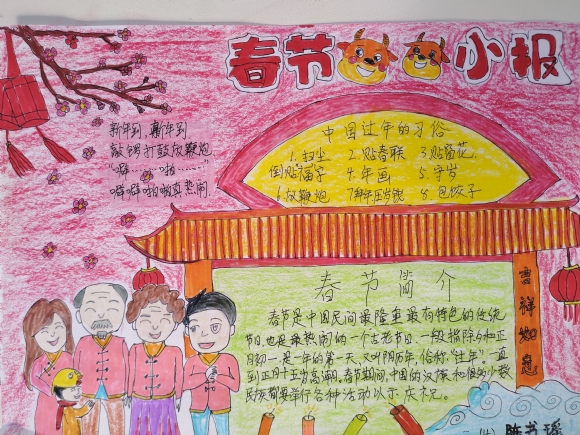 春节小报
新年到,新年到
敲锣打鼓放鞭炮
“噼……啪……”
噼噼啪啪真热闹
中国过年的习俗
1.扫尘 2.贴春联 3.贴窗花
倒贴福字 4.年画 5.守岁
6.放鞭炮 7.拜年压岁钱 8.包饺子
春节简介
春节是中国民间最隆重最有特色的传统
节日,也是最热闹的一个古老节日.一般指除夕和正
月初一,是一年的第一天,又叫阴历年,俗称“过年”.一直
到正月十五.春节期间,中国的汉族和很多少数
民族都要举行各种活动以示庆祝.
吉祥如意
陈书瑶